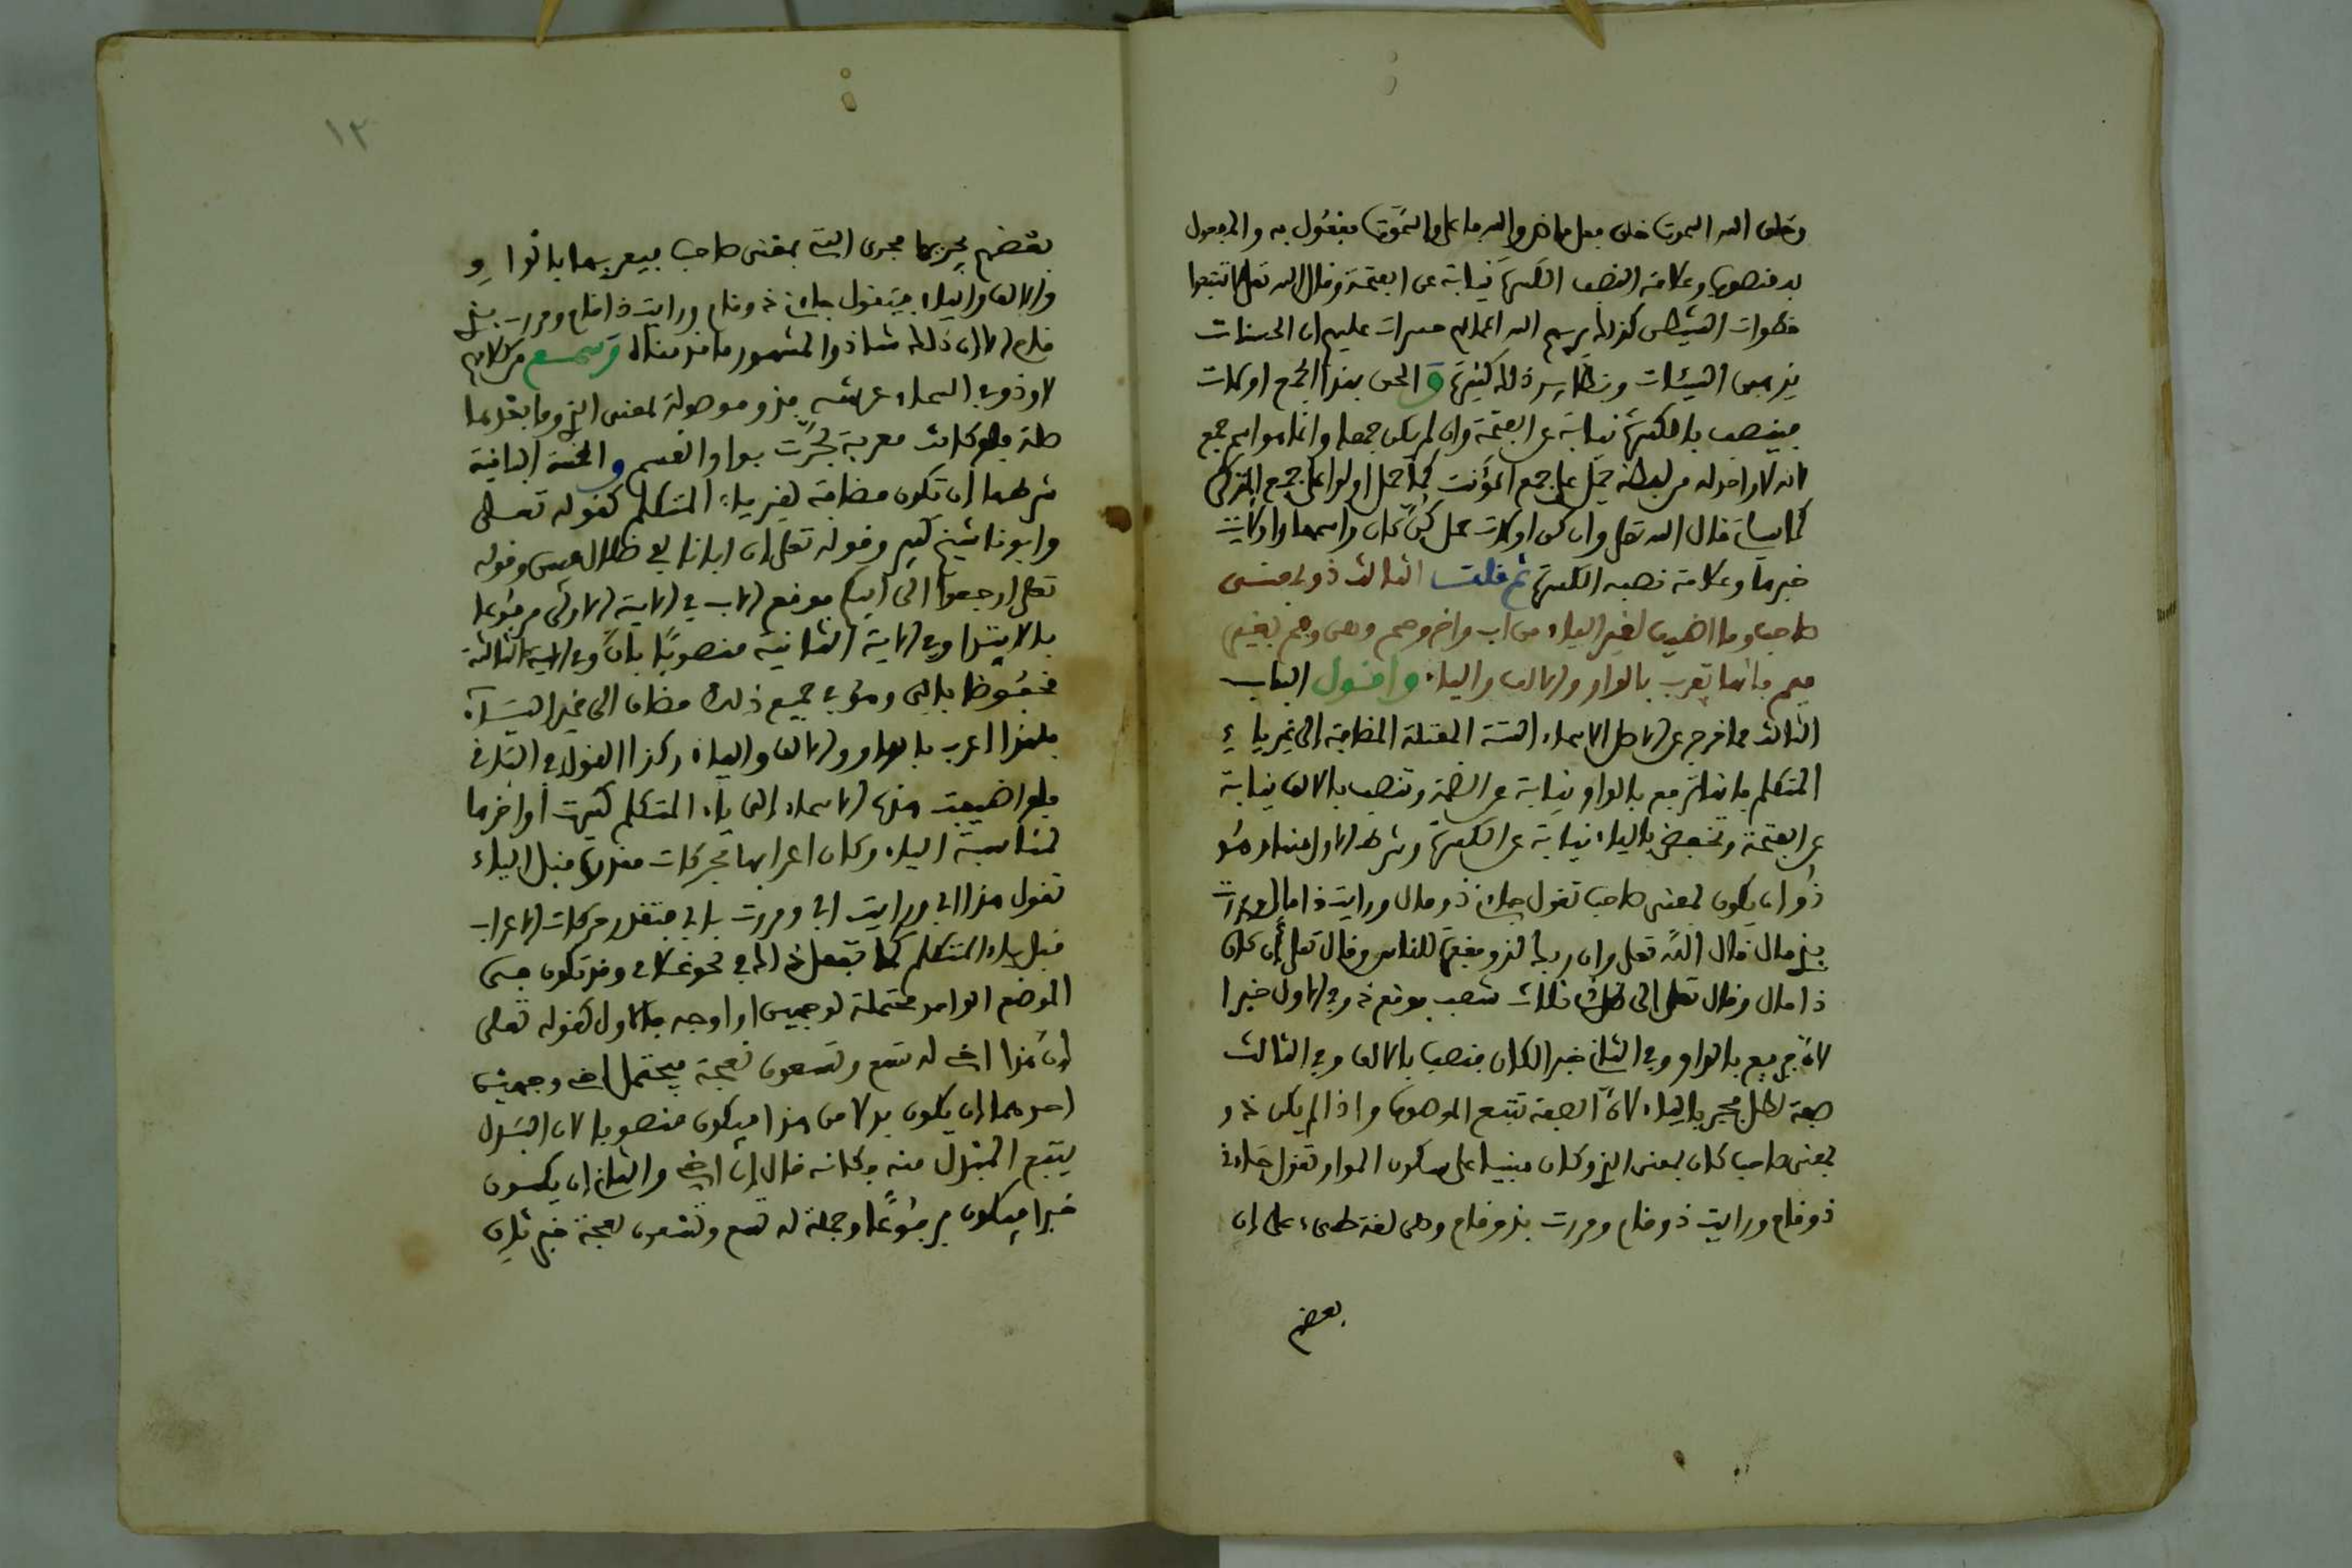 وخلق الله السموت خلق فعل ماض والله فاعل والسموت مفعول به والمفعول
به منصوب وعلامة النصب الكسرة نيابة عن الفتحة وقال الله تعلى لا تتبعوا
خطوات الشيطن كذلك يريهم الله اعمالهم حسرات عليهم ان الحسنات
يذهبن السيئات ونظاير ذلك كثيرة و الحق بهذا الجمع اولات
فينصب بالكسرة نيابة عن الفتحة وان لم يكن جمعا وانما هو اسم جمع
لانه لا واحد له من لفظه حمل على جمع المؤنث كما حمل اولوا على جمع المذكر
كما سياتي قال الله تعلى وان كن اولات حمل كن كان واسمها واولات
خبرها وعلامة نصبه الكسرة ثم قلت الثالث ذو بمعنى
صاحب وما اضيف لغير الياء من اب واخ وحم وهن وفم بغير
ميم فانها تعرب بالواو والالف والياء واقول الباب
الثالث مما خرج عن الاصل الاسماء الستة المعتلة المضافة الى غير ياء
المتكلم فانها ترفع بالواو نيابة عن الضمة وتنصب بالالف نيابة
عن الفتحة وتخفض بالياء نيابة عن الكسرة وشرط الاول منها وهو
ذو ان يكون بمعنى صاحب تقول جاءني ذو مال ورايت ذا مال ومررت
بذي مال قال الله تعلى وان ربك لذو مغفرة للناس وقال تعلى أن كان
ذا مال وقال تعلى الى ظل ذي ثلاث شعب فوقع ذو في الاول خبرا
لأن فرفع بالواو وفي الثاني خبرا لكان فنصب بالالف وفي الثالث
صفة لظل فجر بالياء لأن الصفة تتبع الموصوف واذا لم يكن ذو
بمعنى صاحب كان بمعنى الذي وكان مبنيا على سكون الواو تقول جاءني
ذو قام ورايت ذو قام ومررت بذو قام وهي لغة طيء على ان
بعضهم
١٢
بعضهم يجريها مجرى التي بمعنى صاحب فيعربها بالواو
والالف والياء فيقول جاءني ذو قام ورايت ذا قام ومررت بذي
قام الا ان ذلك شاذ والمشهور ما قدمناه وسمع من كلامهم
لا وذو في السماء عرشه فذو موصولة بمعنى الذي وما بعدها
صلة فلو كانت معربة لجرت بواو القسم و الخمسة الباقية
شرطها ان تكون مضافة لغير ياء المتكلم كقوله تعلى
وابونا شيخ كبير وقوله تعلى ان ابانا لفي ظلال مبين وقوله
تعلى ارجعوا الى ابيكم فوقع الاب في الاية الاولى مرفوعا
بالابتدا وفي الاية الثانية منصوبا بان وفي الاية الثالثة
مخفوظا بالى وهو في جميع ذلك مضاف الى غير الياء
فلهذا اعرب بالواو والالف والياء وكذا القول في الباقي
فلو اضيفت هذه الاسماء الى ياء المتكلم كسرت أواخرها
لمناسبة الياء وكان اعرابها بحركات مقدرة قبل الياء
تقول هذا ابي ورايت ابي ومررت بابي فتقدر حركات الاعراب
قبل ياء المتكلم كما تفعل ذلك في نحو غلامي وقد تكون في
الموضع الواحد محتملة لوجهين او اوجه فالاول كقوله تعلى
إن هذا اخي له تسع وتسعون نعجة فيحتمل اخي وجهين
احدهما ان يكون بدلا من هذا فيكون منصوبا لان البدل
يتبع المبدل منه وكانه قال ان اخي والثاني ان يكون
خبرا فيكون مرفوعا وجملة له تسع وتسعون نعجة خبر ثان